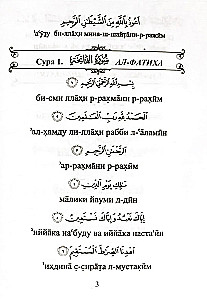 أَعُوذُ بِاللَّهِ مِنَ الشَّيْطَانِ الرَّجِيمِ
'а'ӯзу би-лляҳи мина-ш-шайт̣а̄ни-р-раджӣм
Сура 1. سُورَةُ الْفَاتِحَةِ АЛ-ФАТИХА
بِسْمِ اللَّهِ الرَّحْمَنِ الرَّحِيمِ ١
би-сми ллāхи р-рах̣мāни р-рах̣ӣм
الْحَمْدُ لِلَّهِ رَبِّ الْعَالَمِينَ ٢
'ал-х̣амду ли-ллāхи рабби л-'āламӣн
الرَّحْمَنِ الرَّحِيمِ ٣
'ар-рах̣мāни р-рах̣ӣм
مَالِكِ يَوْمِ الدِّينِ ٤
мāлики йауми д-дӣн
إِيَّاكَ نَعْبُدُ وَإِيَّاكَ نَسْتَعِينُ ٥
'ийй­āка на'буду ва иййāка наста'ӣн
اهْدِنَا الصِّرَاطَ الْمُسْتَقِيمَ ٦
'ихдинā с̣-с̣ирāт̣а л-мустак̣ӣм
3